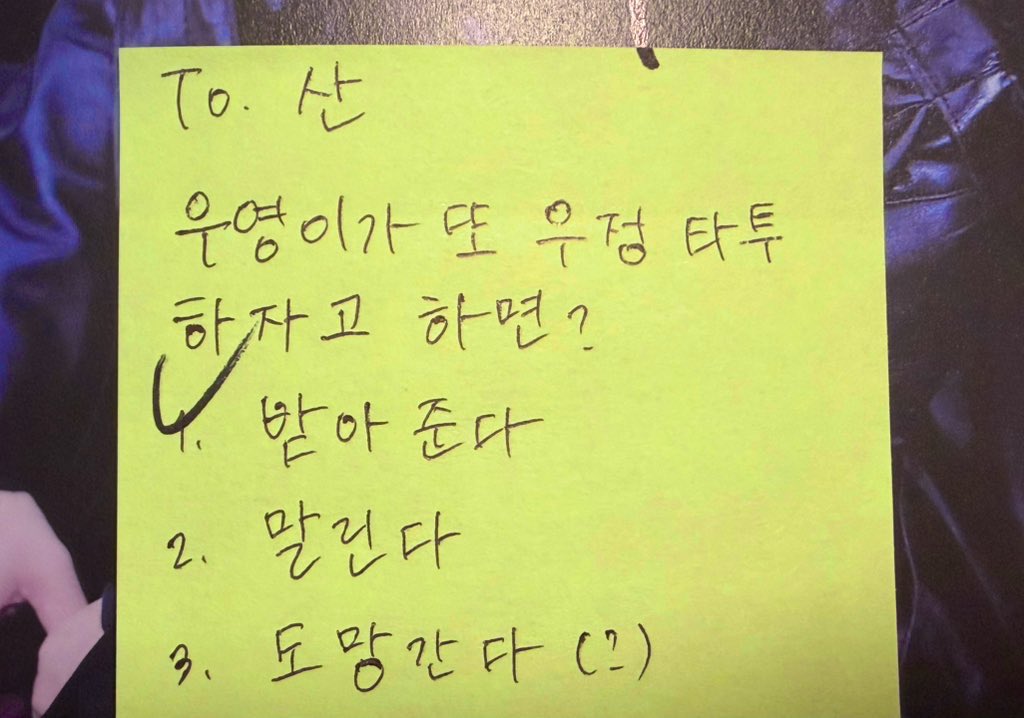 To. 산
우영이가 또 우정 타투
하자고 하면?
1. 받아 준다
2. 말린다
3. 도망간다 (?)